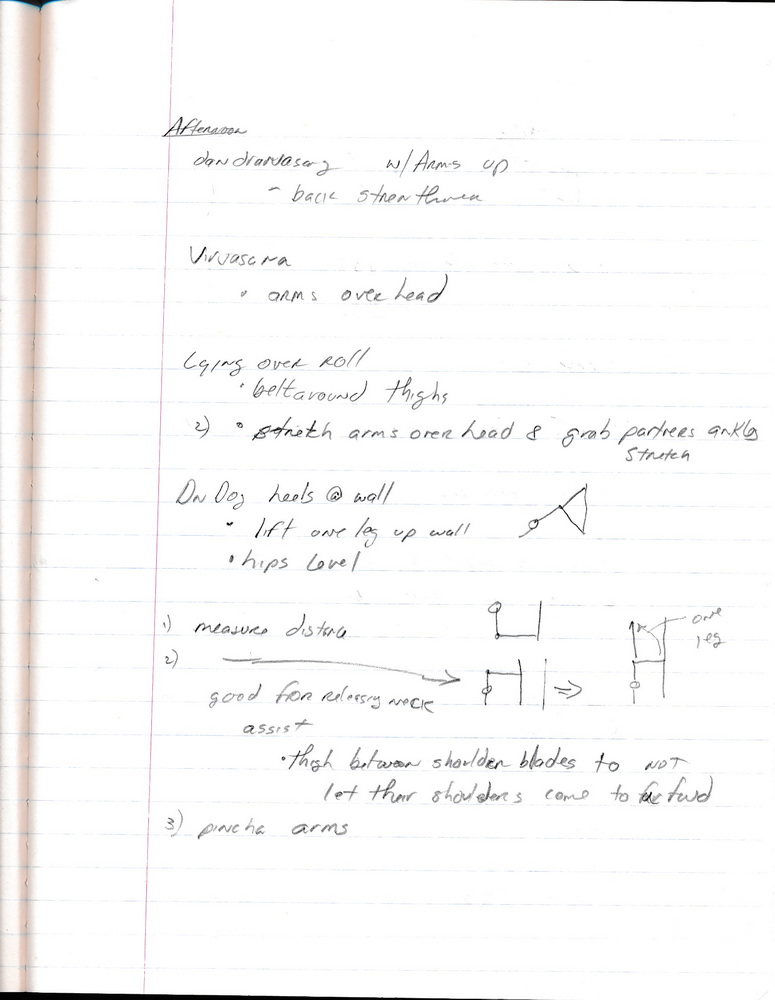 Afternoon
w/ Arms up
- back
Virvasana
• arms over head
Lying over roll
• belt around thighs
2) • stretch arms over head & grab partners ankles
stretch
Dn Dog heels @ wall
• lift one leg up wall
• hips level
1) measure distance
one
leg
2)
good for releasing neck
assist
• thigh between shoulder blades to NOT
let their shoulders come to far fwd
3) pincha arms